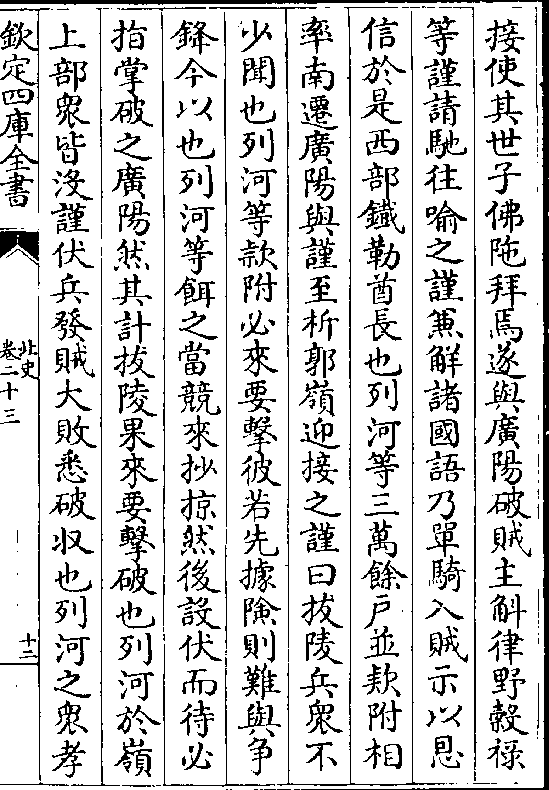 接使其世子佛陁拜焉遂與廣陽破賊主斛律野糓祿
等謹請馳往喻之謹兼解諸國語乃單騎入賊示以恩
信於是西部鐵勒酋長也列河等三萬餘戶並欵附相
率南遷廣陽與謹至析郭嶺迎接之謹曰拔陵兵衆不
少聞也列河等欵附必來要擊彼若先據險則難與争
鋒今以也列河等餌之當競來抄掠然後設伏而待必
指掌破之廣陽然其計拔陵果來要擊破也列河於嶺
上部衆皆沒謹伏兵發賊大敗悉破収也列河之衆孝
欽定四庫全書
北史
卷二十三
十二